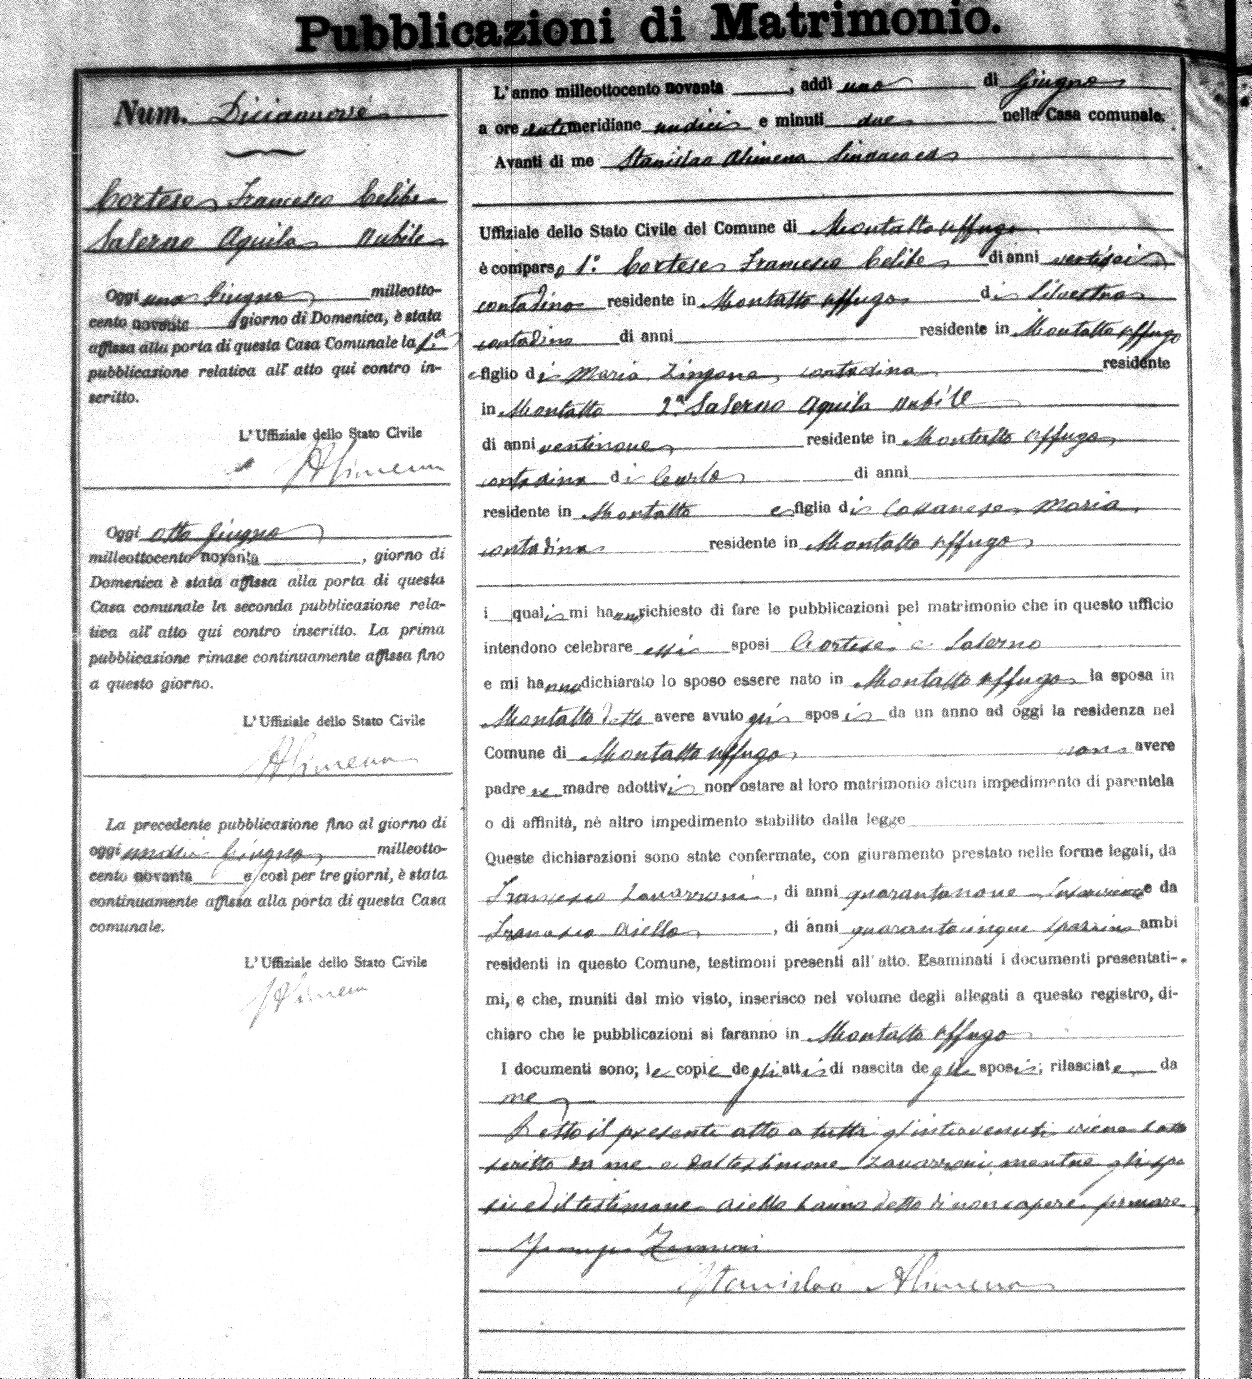 Pubblicazioni di Matrimonio.
Num. Diciannove
Cortese Francesco Celibe
Salerno Aquila Nubile
Oggi uno Giugno milleotto-
cento novanta giorno di Domenica, è stata
affissa alla porta di questa Casa Comunale la 1.a
pubblicazione relativa all' atto qui contro in-
scritto.
L' Uffiziale dello Stato Civile
SAlimena
Oggi otto Giugno
milleottocento novanta, giorno di
Domenica è stata affissa alla porta di questa
Casa comunale la seconda pubblicazione rela-
tiva all' atto qui contro inscritto. La prima
pubblicazione rimase continuamente affissa fino
a questo giorno.
L' Uffiziale dello Stato Civile
SAlimena
La precedente pubblicazione fino al giorno di
oggi undici Giugno milleotto-
cento novanta e così per tre giorni, è stata
continuamente affissa alla porta di questa Casa
comunale.
L' Uffiziale dello Stato Civile
SAlimena
L' anno milleottocento novanta, addì uno di Giugno
a ore antimeridiane undici e minuti due nella Casa comunale.
Avanti di me Stanislao Alimena Sindaco ed
Uffiziale dello Stato Civile del Comune di Montalto Uffugo
è comparso 1.° Cortese Francesco Celibe di anni ventisei
contadino residente in Montalto Uffugo di Silvestro
contadino di anni residente in Montalto Uffugo
e figlio di Maria Zingone, contadina residente
in Montalto 2.a Salerno Aquila nubile
di anni ventinove residente in Montalto Uffugo
contadina di Carlo di anni
residente in Montalto e figlia di Cassanese Maria
contadina residente in Montalto Uffugo
i quali mi hanno richiesto di fare le pubblicazioni pel matrimonio che in questo ufficio
intendono celebrare essi sposi Cortese e Salerno
e mi hanno dichiarato lo sposo essere nato in Montalto Uffugo la sposa in
Montalto detto avere avuto gli sposi da un anno ad oggi la residenza nel
Comune di Montalto Uffugo non avere
padre e madre adottivi non ostare al loro matrimonio alcun impedimento di parentela
o di affinità, nè altro impedimento stabilito dalla legge
Queste dichiarazioni sono state confermate, con giuramento prestato nelle forme legali, da
Francesco Zavarroni, di anni quarantanove e da
Francesco Aiello, di anni quarantacinque spazzino ambi
residenti in questo Comune, testimoni presenti all' atto. Esaminati i documenti presentati-
mi, e che, muniti dal mio visto, inserisco nel volume degli allegati a questo registro, di-
chiaro che le pubblicazioni si faranno in Montalto Uffugo
I documenti sono; le copie degli atti di nascita degli sposi; rilasciate da
me
Letto il presente atto a tutti gl'intervenuti viene sotto
scritto da me e dal testimone Zavarroni mentre gli spo
si ed il testimone Aiello hanno detto di non sapere firmare
Zavarroni
Stanislao Alimena